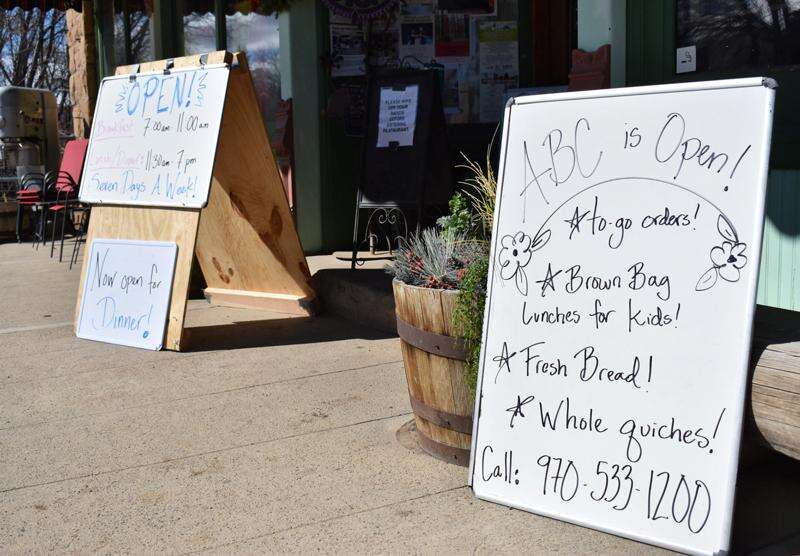 OPEN!
Breakfast 7:00am-11:00am
Lunch/Dinner: 11:30am-7pm
Seven Days A Week!
Now open for
Dinner!
PLEASE WIPE
OFF YOUR
BEFORE
ENTERING
RESTAURANT
ABC is Open!
to-go orders!
Brown Bag
Lunches for Kids!
Fresh Bread!
Whole quiches!
Call: 970-533-1200